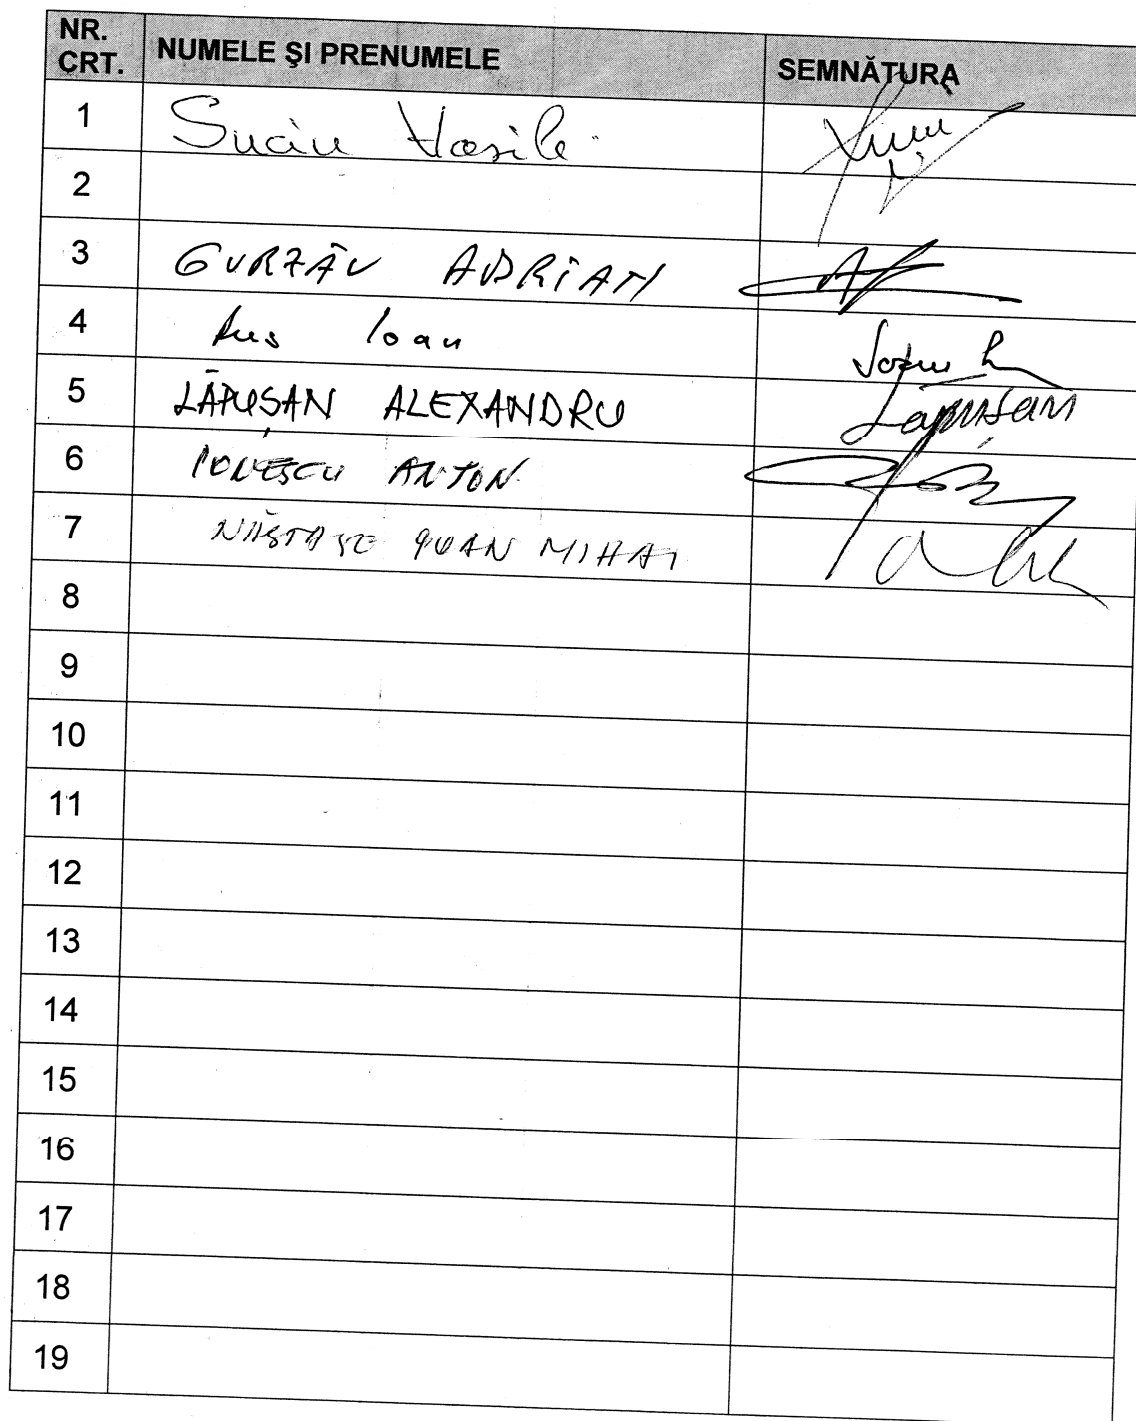 NR. CRT. NUMELE ŞI PRENUMELE SEMNĂTURA
1 Suciu Vasile
2
3 GURZĂU ADRIAN
4 Rus Ioan
5 LĂPUŞAN ALEXANDRU Lapusan
6 IONESCU ANTON
7 NĂSTASE IOAN MIHAI
8
9
10
11
12
13
14
15
16
17
18
19